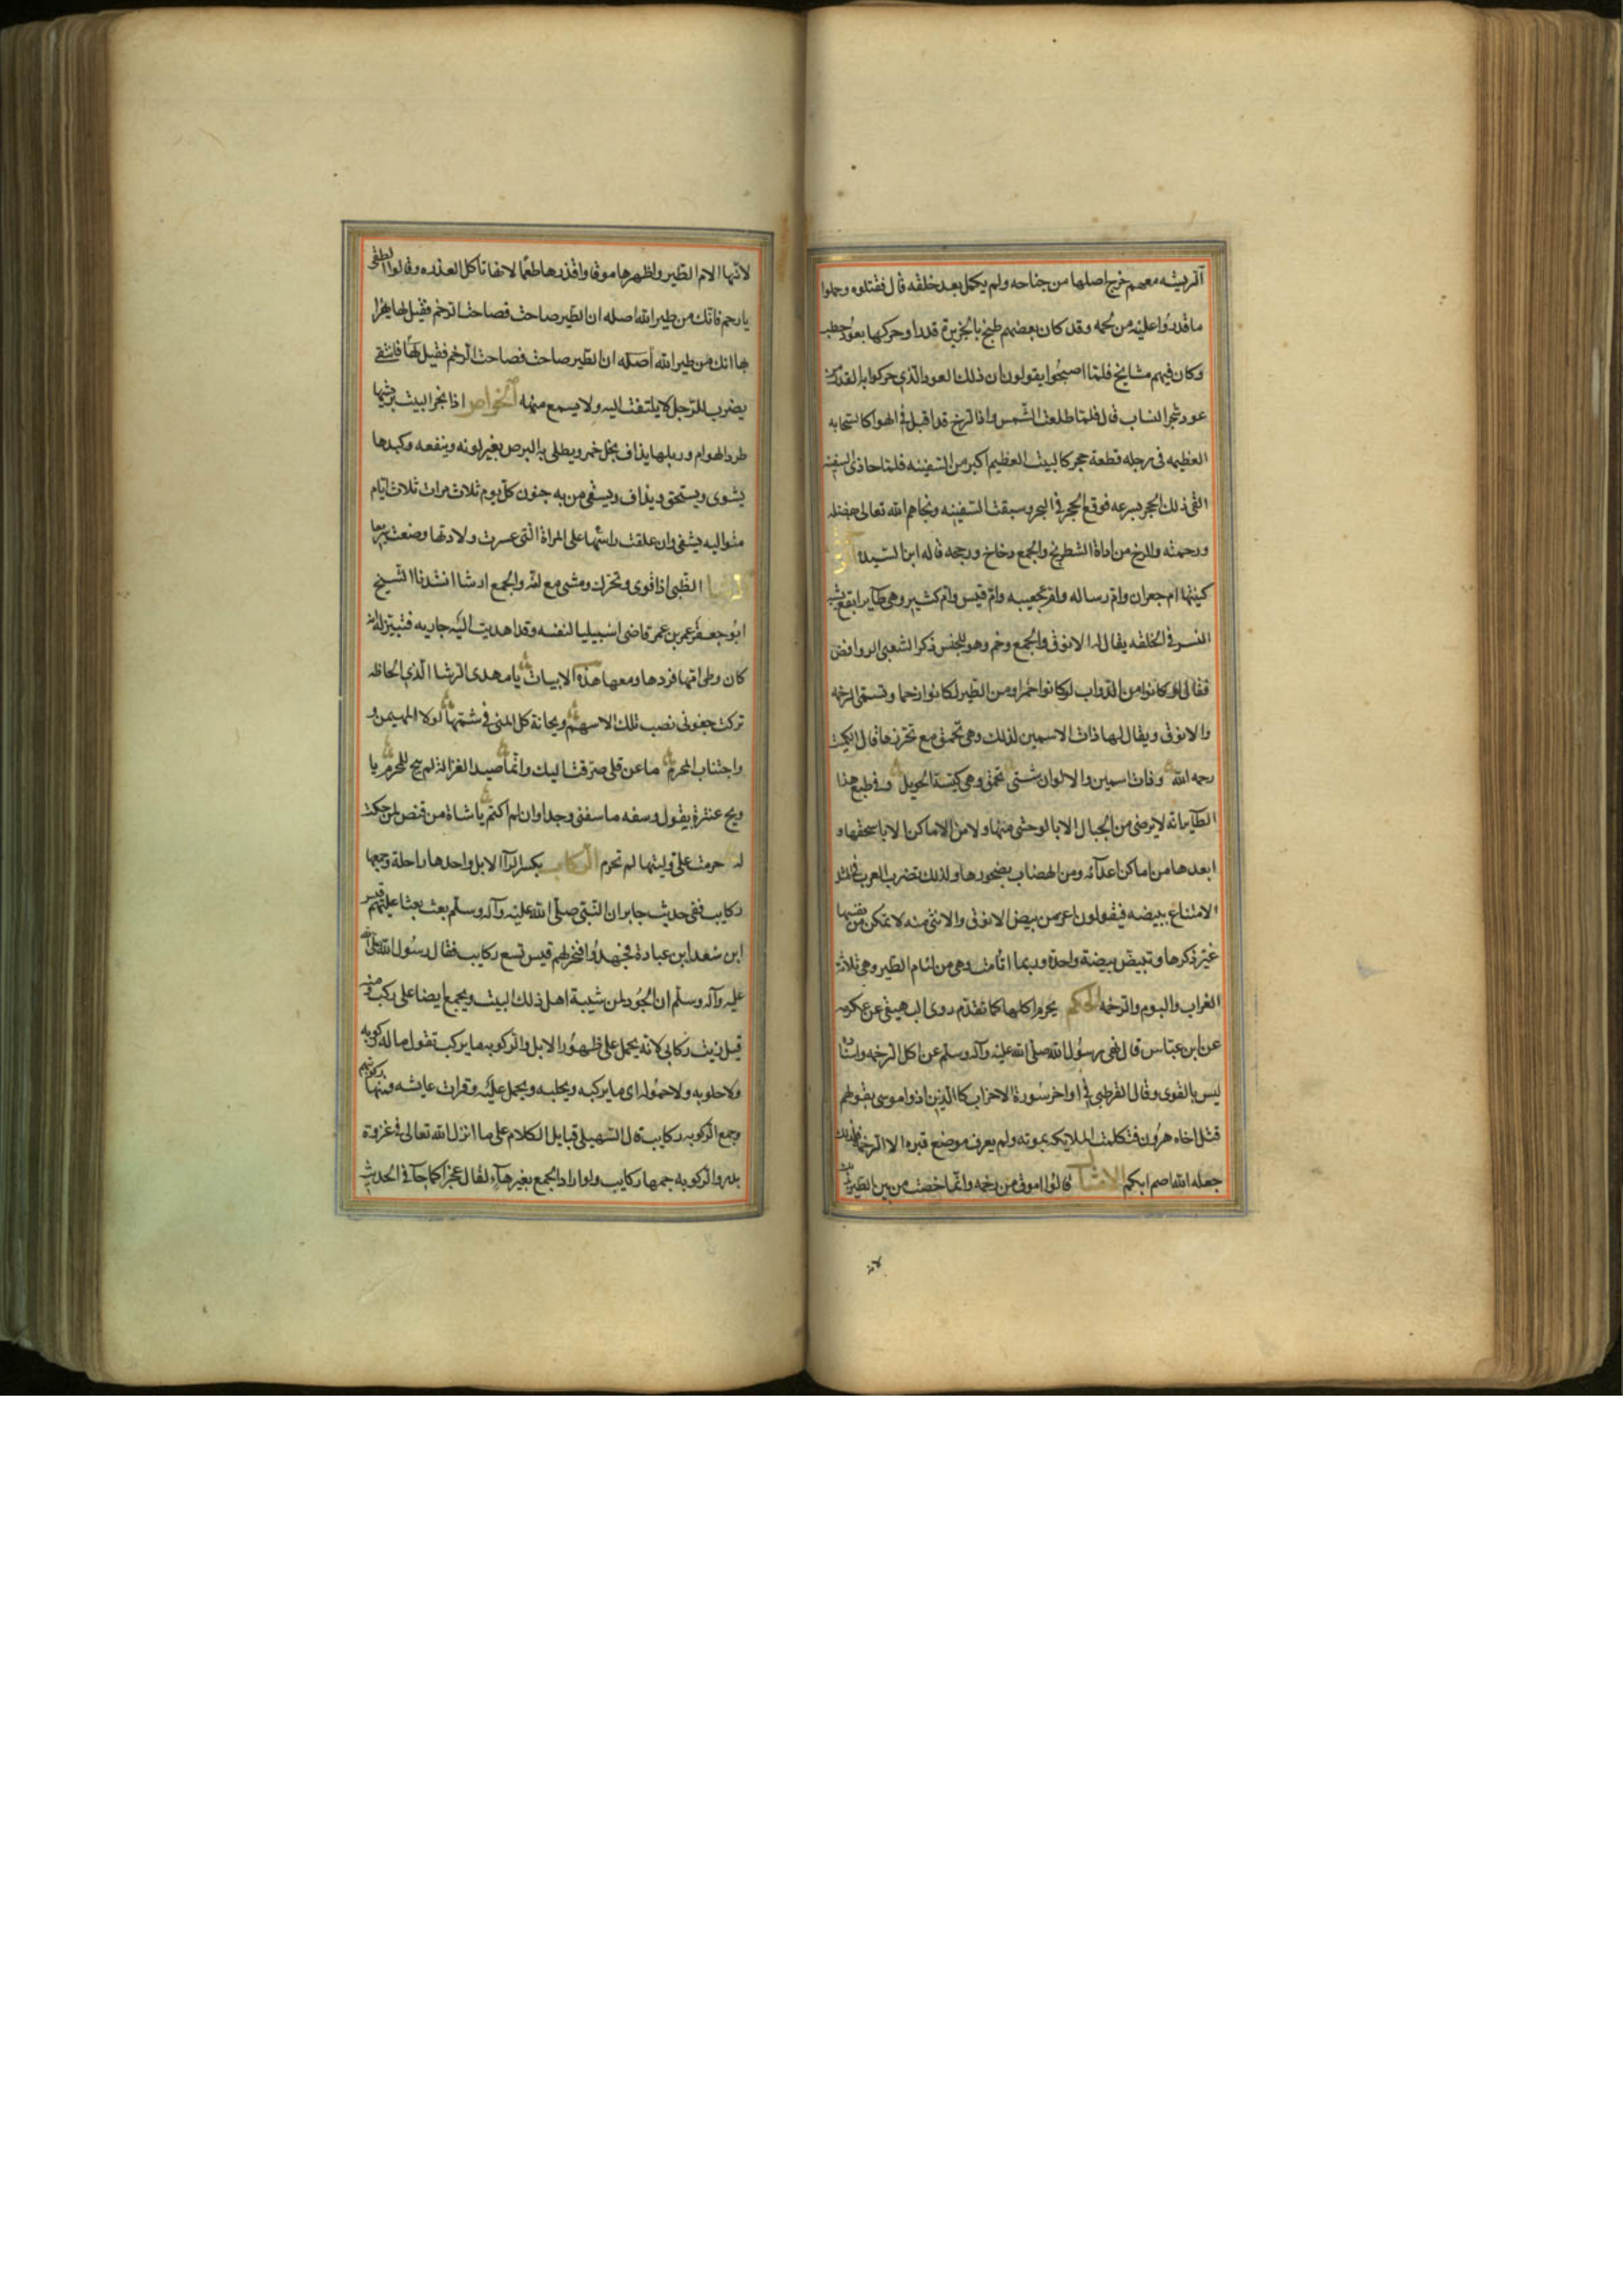 الريشه معهم خرج اصلها من جناحه ولم يكمل بعد خلقه قال فقتلوه وحملوا
ما قدروا عليه من لحمه وقد كان بعضهم طبخ بالجزيرة قدرا وحركها بعود حطب
وكان فيهم مشايخ فلما اصبحوا يقولون ان ذلك العود الذي حركوا به القدر من
عود شجر الشاب قال فلما طلعت الشمس واذا الرخ قد اقبل في الهوا كالسحابه
العظيمه في رجله قطعة حجر كالبيت العظيم اكبر من السفينه فلما حاذى السفينه
القى ذلك الحجر بسرعه فوقع الحجر في البحر وسبقت السفينه ونجاهم الله تعالى بفضله
ورحمته والرخ من اداة الشطرنج والجمع رخاخ ورخخه قاله ابن السيده
كنيتها ام جعران وام رساله وام عجيبه وام قيس وام كثير وهي طاير ابقع يشبه
النسر في الخلقه يقال له الانوق والجمع رخم وهو للجنس ذكر الشعبي الروافض
فقال لو كانوا من الدواب لكانوا حمرا ومن الطير لكانوا رخما وتسمى الرخمه
والانوق ويقال لها ذات الاسمين لذلك وهي تحمق مع تحرزها قال الكميت
رحمه الله وذات اسمين والالوان شتى تحمق وهي كيسة الحويل وفي طبع هذا
الطاير انه لا يرضى من الجبال الا بالوحشي منها ولا من الاماكن الا باسحقها و
ابعدها من اماكن اعدآئه ومن الهضاب بصخورها ولذلك تضرب العرب المثل
الامتناع ببيضه فيقولون اعز من بيض الانوق والانثى منه لا تمكن من نفسها
غير ذكرها وتبيض بيضة واحدة وربما اتأمت وهي من لئام الطير وهي ثلاثة
الغراب والبوم والرخمه الحكم يحرم اكلها كما تقدم روى البيهقي عن عكرمه
عن ابن عباس قال نهى رسول الله صلى الله عليه وآله وسلم عن اكل الرخمه واسناده
ليس بالقوى وقال القرطبي في اواخر سورة الاحزاب كالذين اذوا موسى بقولهم
قتل اخاه هرون فتكلمت الملايكه بموته ولم يعرف موضع قبره الا الرخم فلذلك
جعله الله اصم ابكم الامثال قالوا اموق من رخمه وانما خصت من بين الطير
لانها
لانها الام الطير واظهرها موقا واقذرها طعما لانها تأكل العذره وقالوا انطقى
يا رخم فانك من طير الله اصله ان الطير صاحت فصاحت الرخم فقيل لها يهزا
بها انك من طير الله أصله ان الطير صاحت فصاحت الرخم فقيل لها فانطقى
يضرب للرجل لا يلتفت اليه ولا يسمع منه الخواص اذا بخر البيت بريشها
طرد الهوام وزبلها يذاف بخل خمر ويطلى به البرص يغير لونه وينفعه وكبدها
يشوى ويسحق ويذاف ويسقى من به جنون كل يوم ثلاث مرات ثلاث ايام
متواليه يشفى وان علقت راسها على المراة التى عسرت ولادتها وضعت سريعا
الرشا الظبى اذا قوى وتحرك ومشى مع امه والجمع ارشا انشدنا الشيخ
ابو جعفر عمر بن عمر قاضى اشبيليا لنفسه وقد اهديت اليه جاريه فتبين له انه
كان وطى امها فردها ومعها هذه الابيات يا مهدى الرشا الذي الحاظه
تركت جفونى نصب تلك الاسهم ريحانة كل المنى في شمها لولا المهيمن و
واجتناب المحرم ما عن قلى صرفت اليك وانما صيد الغزالة لم يبح للمحرم يا
ويح عنترة يقول وسفه ما سفنى وجدا وان لم اكتم يا شاة من قنص لمن حلت
له حرمت على وليتها لم تحرم الركاب بكسر الرآ الابل واحدها راحلة وجمعها
ركايب ففى حديث جابر ان النبى صلى الله عليه وآله وسلم بعث بعثا عليهم قيس
ابن سعد ابن عبادة فجهدوا فنحر لهم قيس تسع ركايب فقال رسول الله صلى الله
عليه وآله وسلم ان الجود لمن شيبة اهل ذلك البيت ويجمع ايضا على ركب ومنه
قيل زيت ركابي لانه يحمل على ظهور الابل والركوبه ما يركب تقول ما له ركوبه
ولا حلوبه ولا حموله اى ما يركبه ويحلبه ويحمل عليه وقرات عايشه فمنها ركوبتهم
وجمع الركوبه ركايب قال السهيلي قبايل الكلام على ما انزل الله تعالى في غزوة
بدر والركوبه جمعها ركايب ولو اراد الجمع بغير هآء لقال عجز كما جآ في الحديث